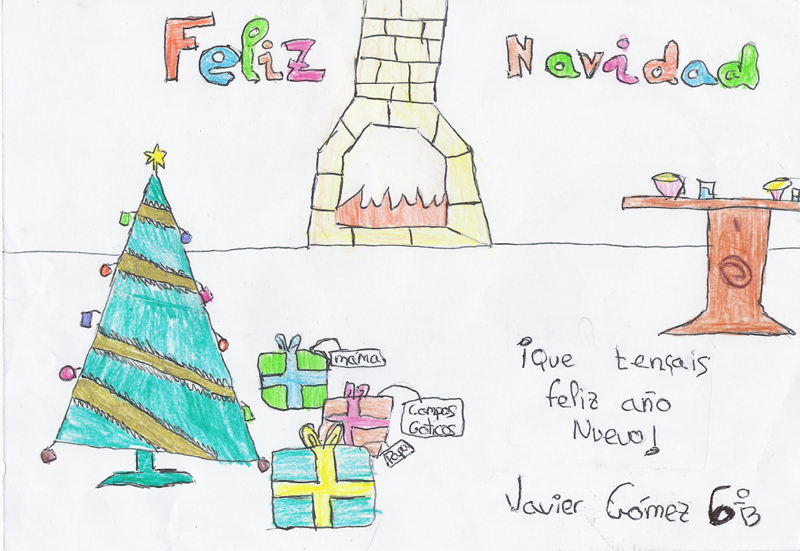 Feliz Navidad
mamá
Campos
Góticos
Papá
¡Que tençais
feliz año
Nuevo!
Javier Gómez 6ºB